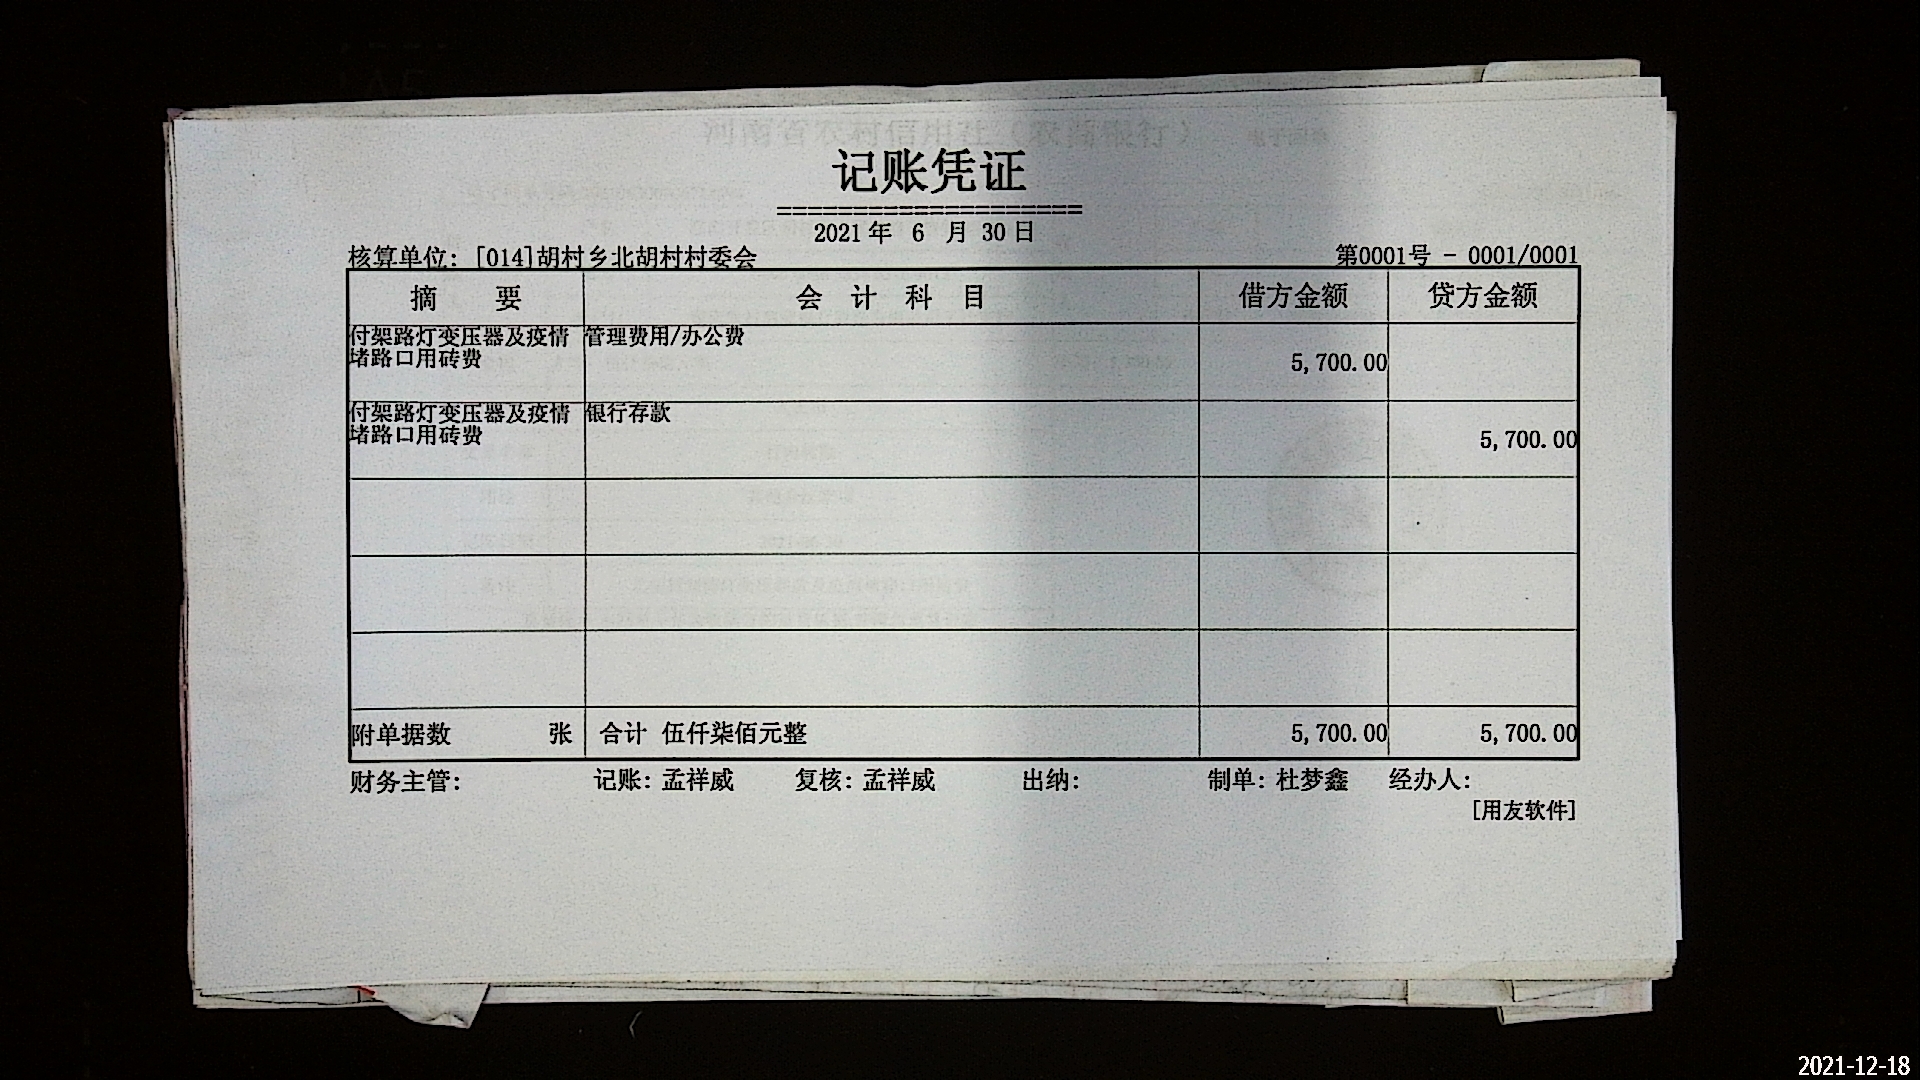 记账凭证
====================
2021 年 6 月 30 日
核算单位: [014]胡村乡北胡村村委会 第0001号 - 0001/0001
摘 要 会 计 科 目 借方金额 贷方金额
付架路灯变压器及疫情 管理费用/办公费
堵路口用砖费 5,700.00
付架路灯变压器及疫情 银行存款
堵路口用砖费 5,700.00
附单据数 张 合计 伍仟柒佰元整 5,700.00 5,700.00
财务主管: 记账: 孟祥威 复核: 孟祥威 出纳: 制单: 杜梦鑫 经办人:
[用友软件]
2021-12-18